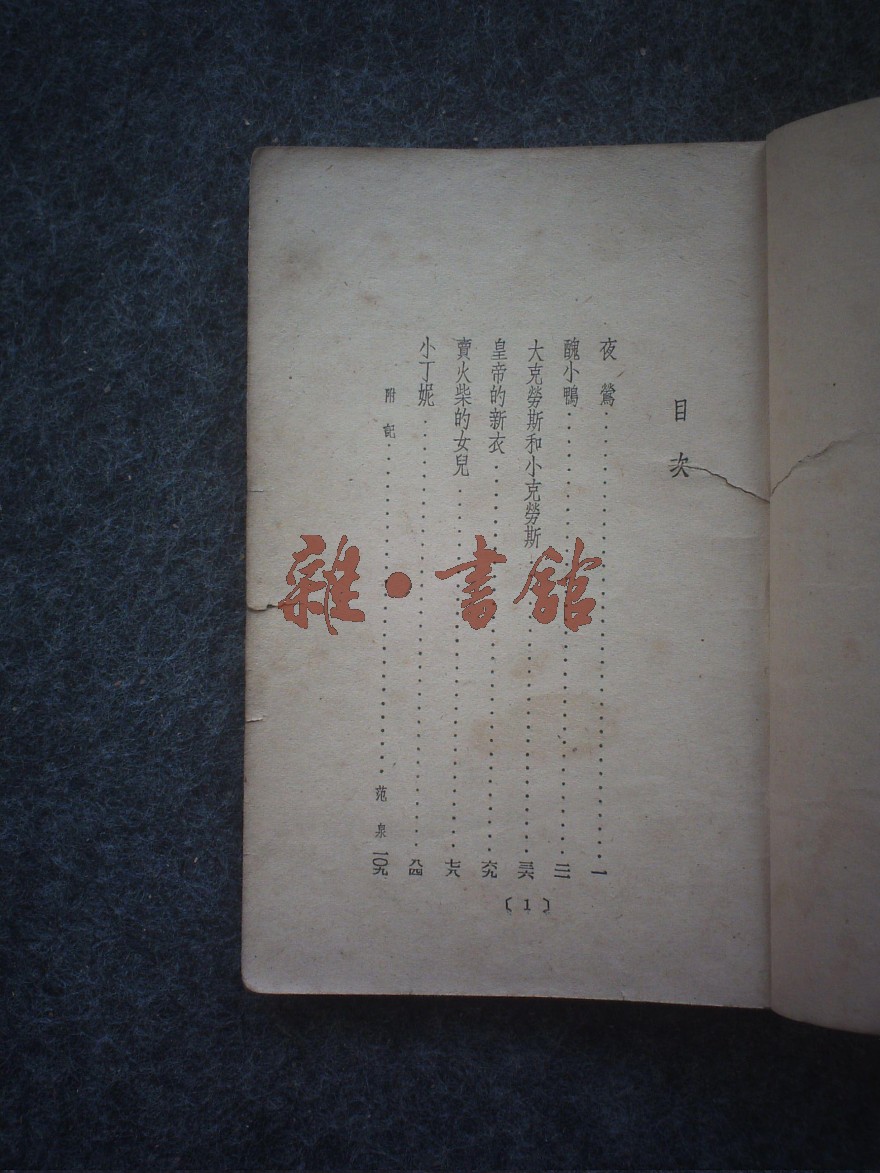 目次
夜鶯……一
醜小鴨……二一
大克勞斯和小克勞斯……三六
皇帝的新衣……六九
賣火柴的女兒……七八
小丁妮……八四
附記……范泉 一〇九
〔1〕
雜·書館